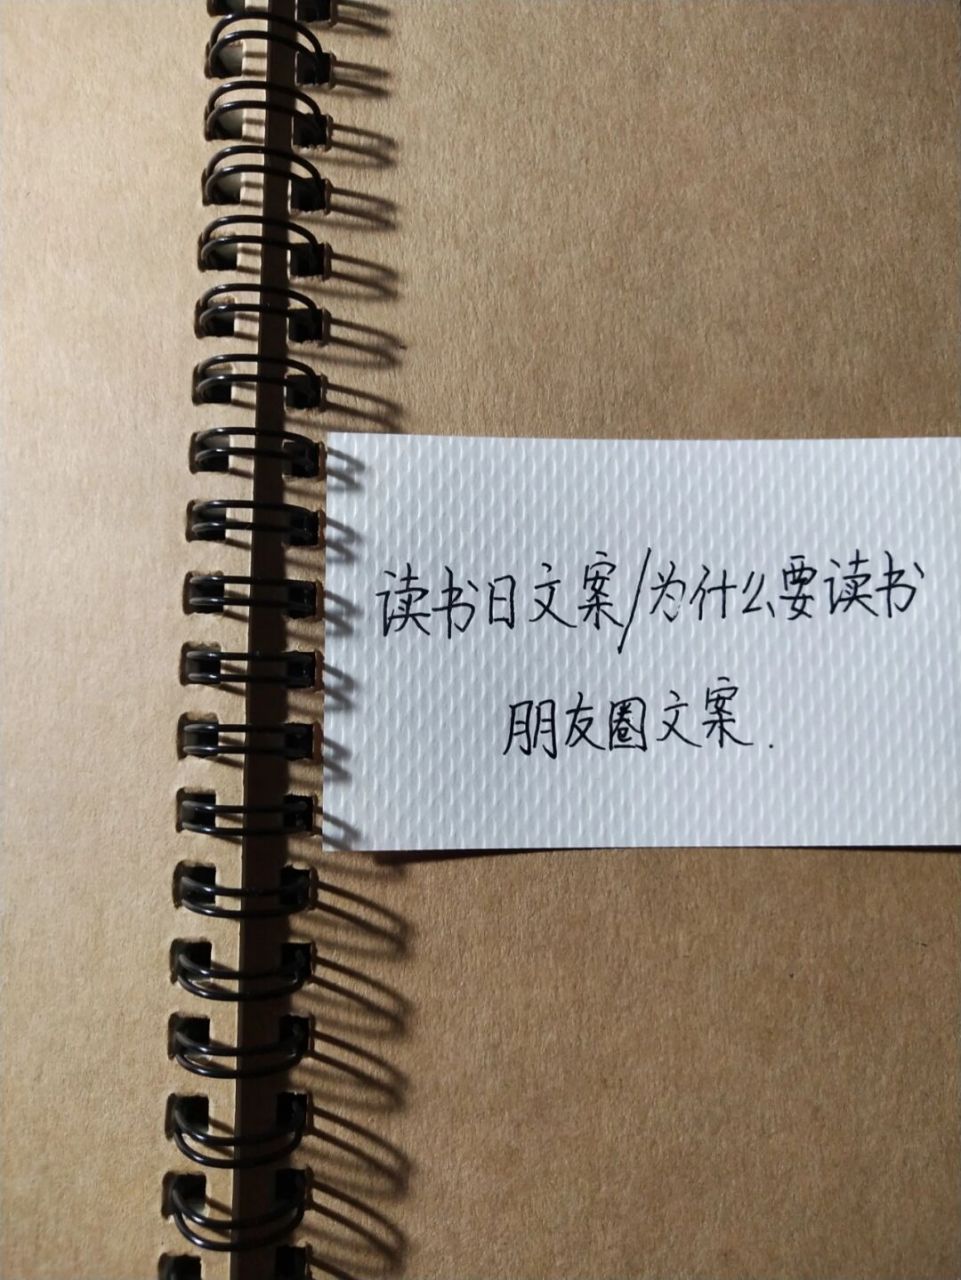 读书日文案/为什么要读书
朋友圈文案.